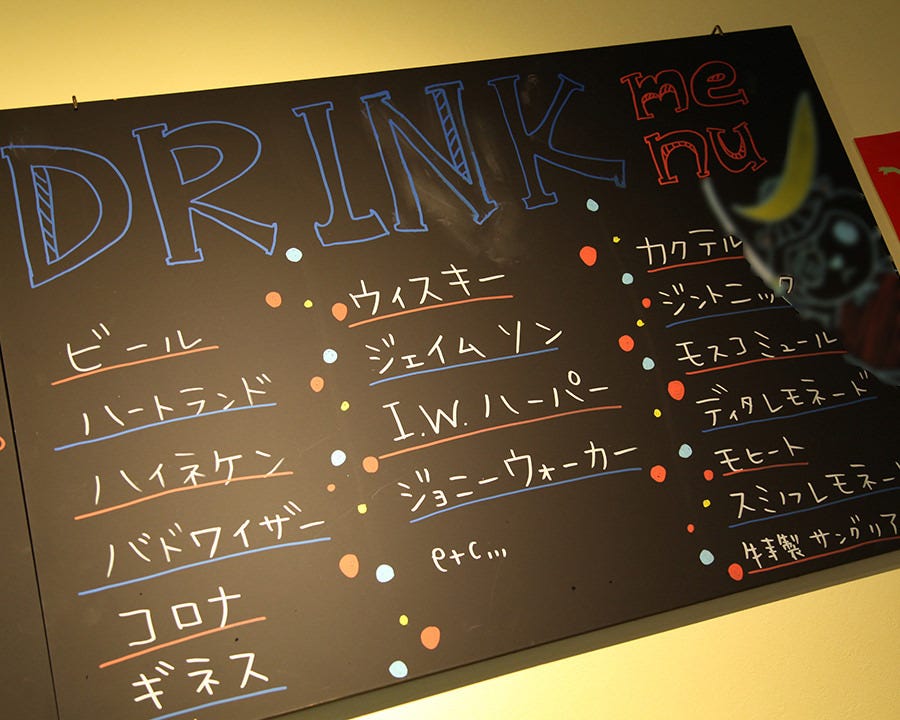 DRINK
me
nu
ビール
ハートランド
ハイネケン
バドワイザー
コロナ
ギネス
ウィスキー
ジェイムソン
I.W.ハーパー
ジョニーウォーカー
etc...
カクテル
ジントニック
モスコミュール
ディタレモネード
モヒート
スミノフレモネー
サングリア